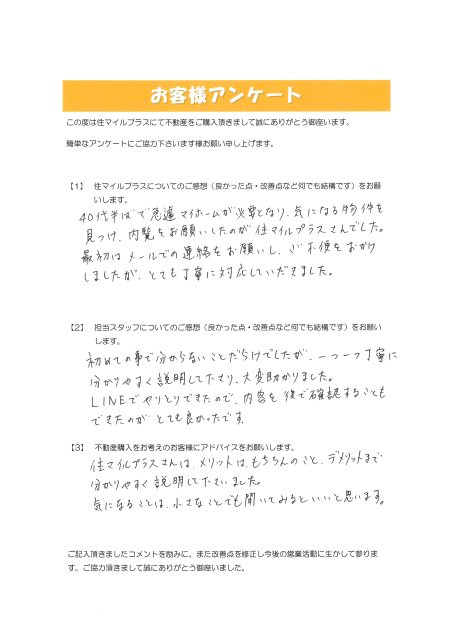 お客様アンケート
この度は住マイルプラスにて不動産をご購入頂きまして誠にありがとう御座います。
簡単なアンケートにご協力下さいます様お願い申し上げます。
【1】 住マイルプラスについてのご感想（良かった点・改善点など何でも結構です）をお願
いします。
40代半ばで急遽マイホームが必要となり、気になる物件を
見つけ、内覧をお願いしたのが住マイルプラスさんでした。
最初はメールでの連絡をお願いし、ご不便をおかけ
しましたが、とても丁寧に対応していただきました。
【2】 担当スタッフについてのご感想（良かった点・改善点など何でも結構です）をお願い
します。
初めての事で分からないことだらけでしたが、一つ一つ丁寧に
分かりやすく説明して下さり、大変助かりました。
LINEでやりとりできたので、内容を後で確認することも
できたのがとても良かったです。
【3】 不動産購入をお考えのお客様にアドバイスをお願いします。
住マイルプラスさんは、メリットは、もちろんのこと、デメリットまで
分かりやすく説明して下さいました。
気になることは、小さなことでも聞いてみるといいと思います。
ご記入頂きましたコメントを励みに、また改善点を修正し今後の営業活動に生かして参りま
す。ご協力頂きまして誠にありがとう御座いました。